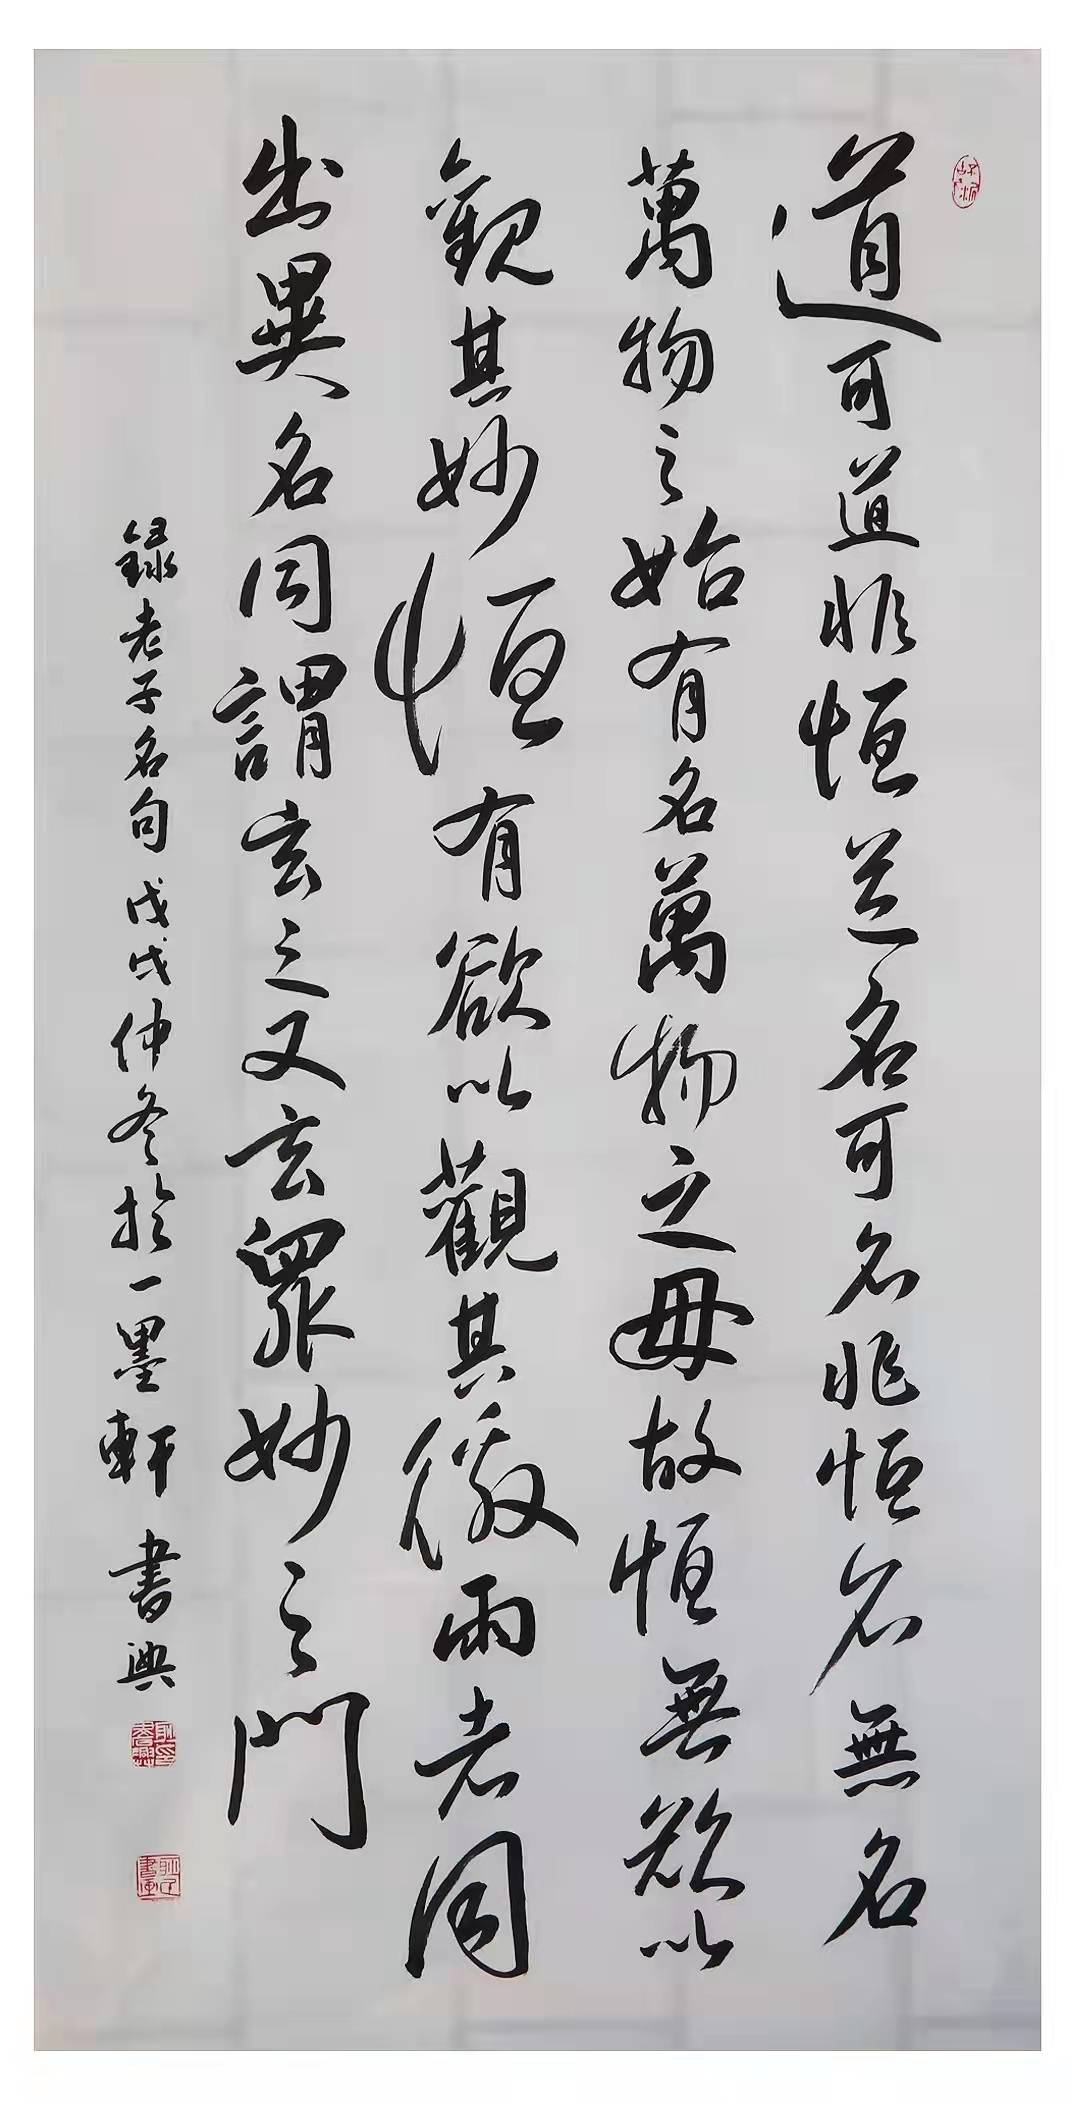 道可道非恒道名可名非恒名無名
萬物之始有名萬物之母故恒無欲以
觀其妙恒有欲以觀其徼兩者同
出異名同謂玄之又玄眾妙之門
録老子名句 戊戌仲冬於一墨軒 書興